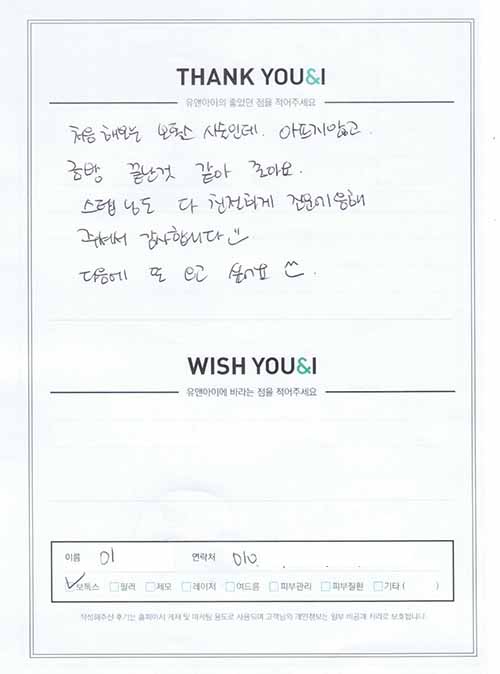 THANK YOU&I
유앤아이의 좋았던 점을 적어주세요
처음 해보는 보톡스 시술인데. 아프지않고.
금방 끝난것 같아 조아요.
스텝 님도 다 친절하게 해
주셔서 감사합니다
다음에 또 오고 싶어요.
WISH YOU&I
유앤아이에 바라는 점을 적어주세요
이름 이 연락처 010. . .
보톡스 필러 제모 레이저 여드름 피부관리 피부질환 기타 ( )
작성해주신 후기는 홈페이지 게재 및 마케팅 용도로 사용되며 고객님의 개인정보는 일부 비공개 처리로 보호됩니다.